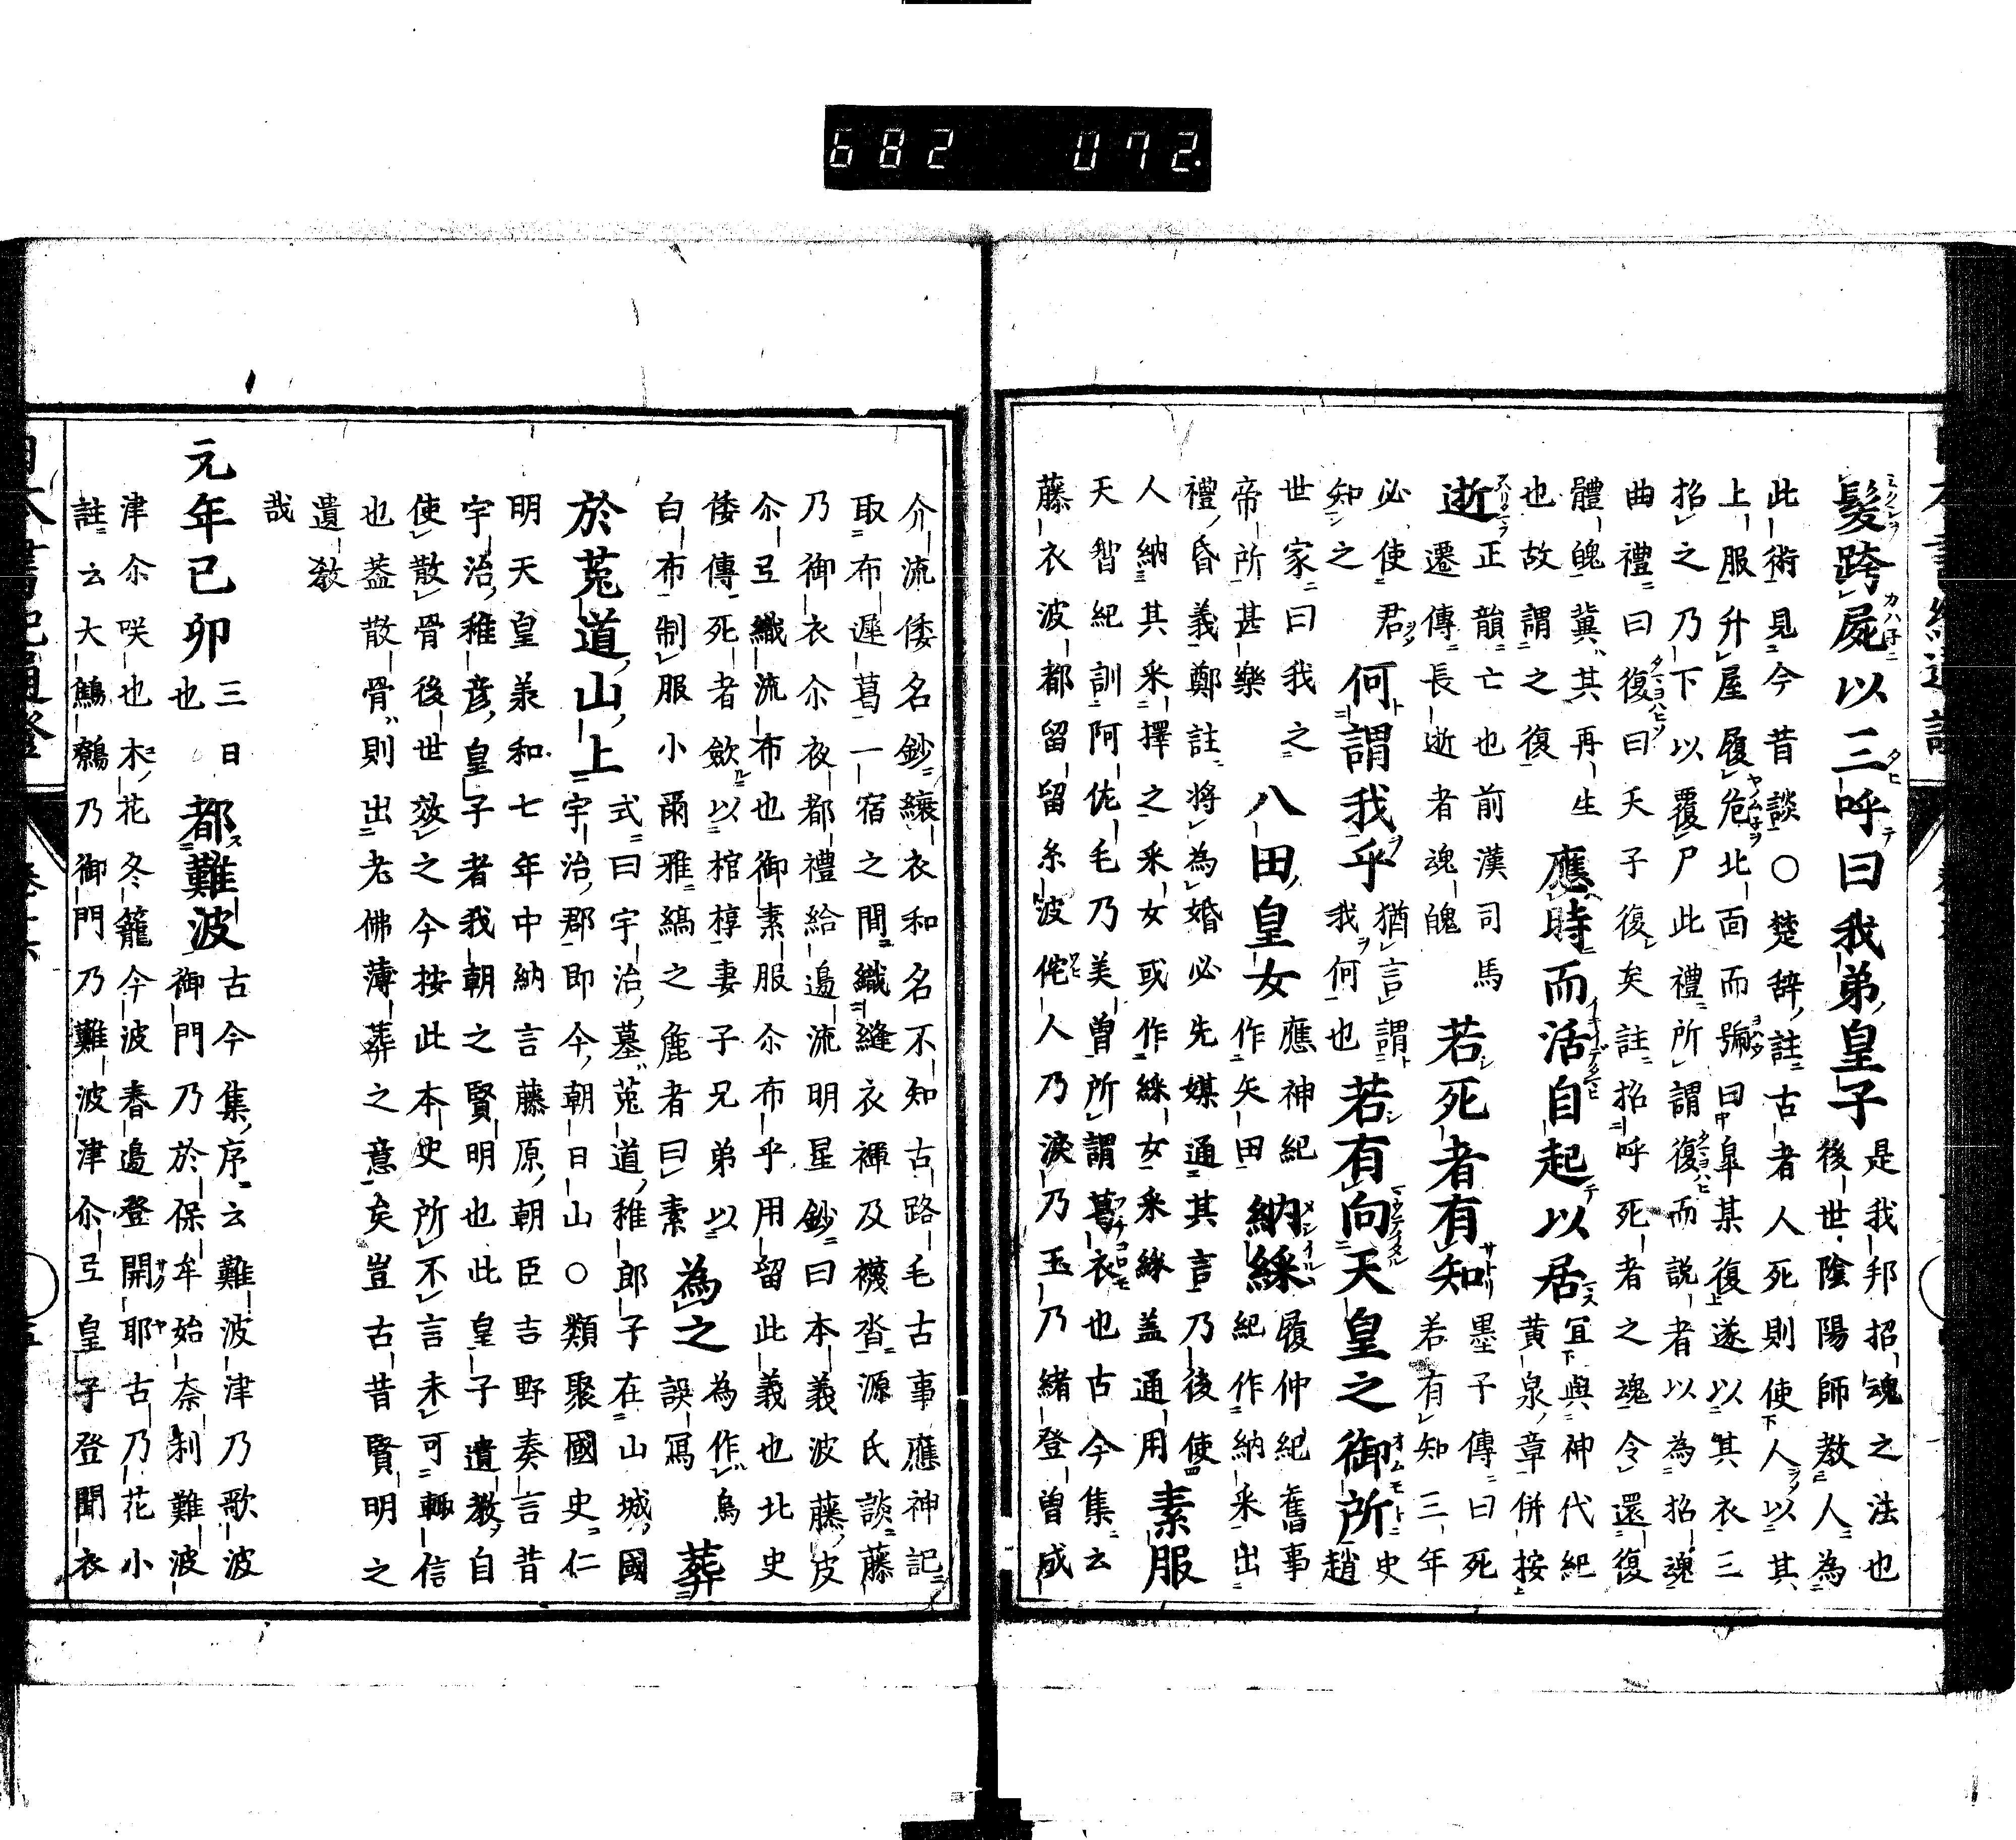 682 072.
髪跨屍以三呼曰我弟皇子 是我邦招魂之法也
後世陰陽師教人為
此術見今昔談○楚辞註古者人死則使人以其
上服升屋履危北面而號曰皐某復遂以其衣三
招之乃下以覆尸此禮所謂復而説者以為招魂
曲禮曰復曰天子復矣註招呼死者之魂令還復
體魄冀其再生 應時而活自起以居 冝與神代紀
也故謂之復 黄泉章併按
逝 正韻亡也前漢司馬遷傳長逝者魂魄 若死者有知 墨子傳曰死
若有知三年
必使君知之 何謂我乎 猶言謂我何也 若有向天皇之御所 史趙
世家曰我之帝所甚樂 八田皇女 應神紀作矢田 納綵 履仲紀舊事
紀作納釆出
禮昏義鄭註将為婚必先媒通其言乃後使
人納其釆擇之釆女或作綵女釆綵盖通用 素服
天智紀訓阿佐毛乃美曽所謂葛衣也古今集云
藤衣波都留留糸波侘人乃涙乃玉乃緒登曽成
介流倭名鈔縗衣和名不知古路毛古事應神記
取布遅葛一宿之間織縫衣褌及襪沓源氏談藤
乃御衣尒夜都禮給邉流明星鈔曰本義波藤皮
尒弖織流布也御素服尒布乎用留此義也北史
倭傳死者斂以棺椁妻子兄弟以白布制服小爾雅縞之麁者曰素 為之 為作烏誤冩 葬
於菟道山上 式曰宇治墓菟道稚郎子在山城國
宇治郡即今朝日山○類聚國史仁
明天皇羕和七年中納言藤原朝臣吉野奏言昔
宇治稚彦皇子者我朝之賢明也此皇子遺教自
使散骨後世效之今按此本史所不言未可輙信
也葢散骨則出老佛薄葬之意矣豈古昔賢明之
遺教
哉
元年己卯 三日也 都難波 古今集序云難波津乃歌波
御門乃於保牟始奈利難波
津尒咲也木花冬籠今波春邉登開耶古乃花小
註云大鷦鷯乃御門乃難波津尒弖皇子登聞衣